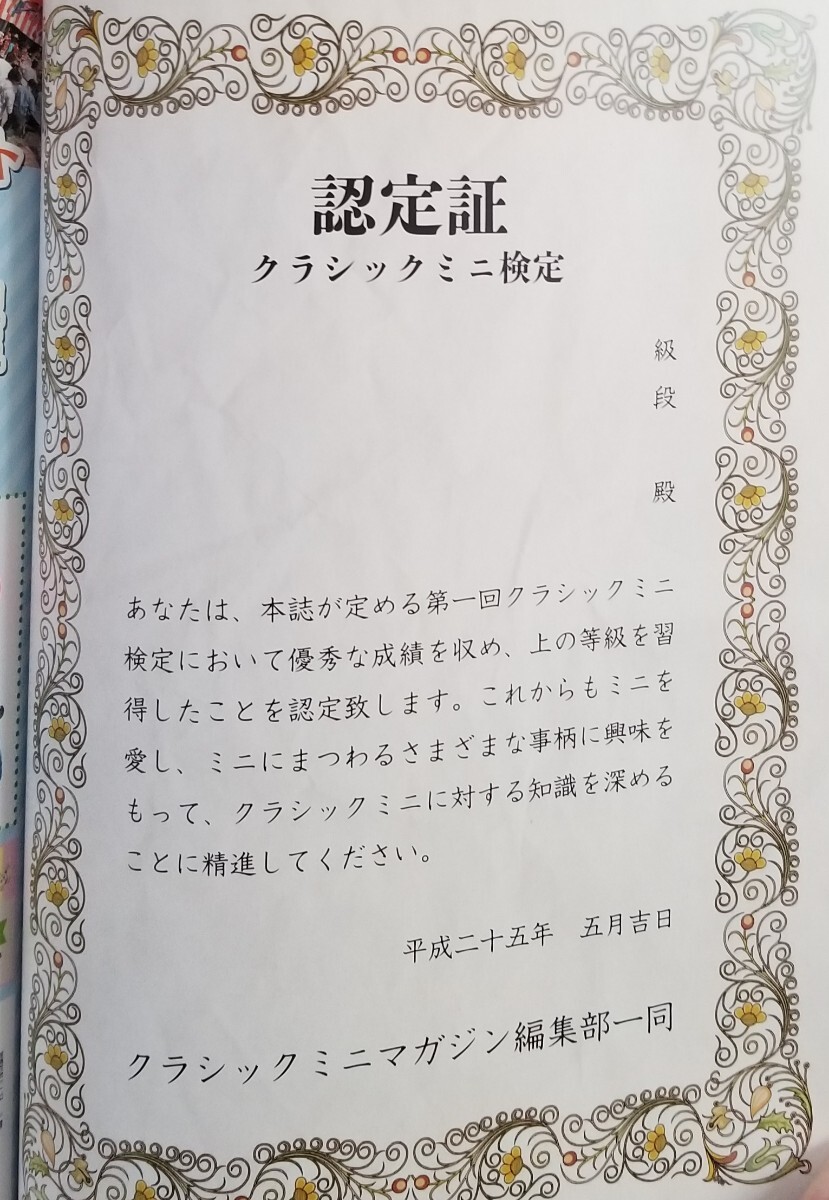 認定証
クラシックミニ検定
級
段
殿
あなたは、本誌が定める第一回クラシックミニ
検定において優秀な成績を収め、上の等級を習
得したことを認定致します。これからもミニを
愛し、ミニにまつわるさまざまな事柄に興味を
もって、クラシックミニに対する知識を深める
ことに精進してください。
平成二十五年　五月吉日
クラシックミニマガジン編集部一同